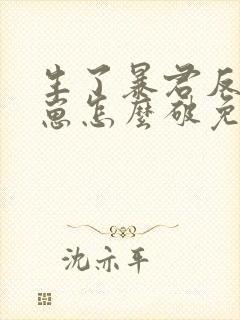 生了暴君反
崽怎麼破免
沈亦平